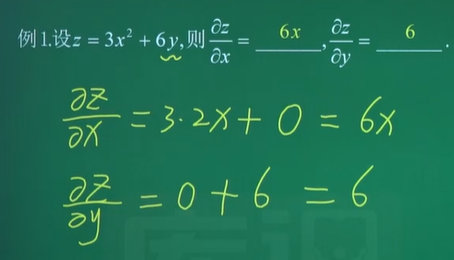 例1.设z = 3x² + 6y,则 ∂z/∂x = 6x, ∂z/∂y = 6.
∂z/∂x = 3·2x + 0 = 6x
∂z/∂y = 0 + 6 = 6